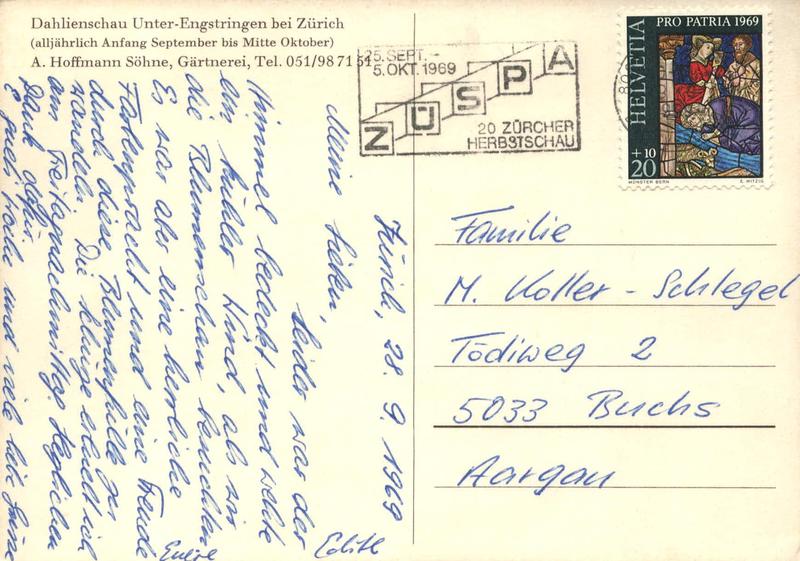 Dahlienschau Unter-Engstringen bei Zürich
(alljährlich Anfang September bis Mitte Oktober)
A. Hoffmann Söhne, Gärtnerei, Tel. 051/98 71 51
25. SEPT. -
5. OKT. 1969
ZÜSPA
20 ZÜRCHER
HERBSTSCHAU
80
HELVETIA
PRO PATRIA 1969
+10
20
MÜNSTER BERN
E. WITZIG
Zürich, 28. 9. 1969
Meine Lieben,
leider war der
Himmel bedeckt und wehte
ein kühler Wind, als wir
die Blumenschau besuchten
Es war aber eine herrliche
Farbenpracht und eine Freude
durch diese Blumenfülle zu
wandeln. Du klinge
am Freitagnachmittag. Herzlichen
Dank dafür.
und viele liebe Grüsse
Euere
Edith
Familie
M. Koller - Schlegel
Tödiweg 2
5033 Buchs
Aargau